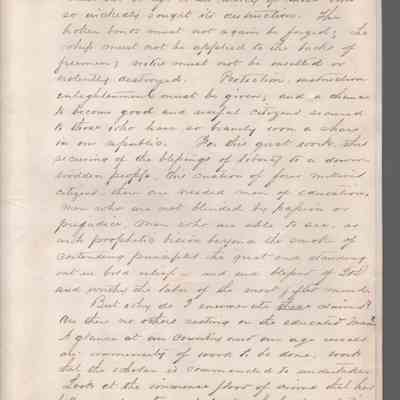 so wickedly sought its destruction. The
broken bonds must not again be forged; the
whip must not be applied to the backs of
freemen; must not be insulted or
violently destroyed. Protection, instruction
enlightenment must be given; and a chance
to become good and useful citizens secured
to those who have so bravely won a share
in our republic. For this great work, this
securing of the blessings of liberty to a down-
trodden people, this creation of four million
citizens there are needed men of education,
men who are not blinded by passion or
prejudice, men who are able to see, as
with prophetic vision beyond the smoke of
contending principles the great end standing
out in bold relief - an end blessed of God
and worthy the labor of the most gifted minds.
But why do I enumerate these claims?
Are there no others resting on the educated man?
A glance at our country and our age reveals
an immensity of work to be done, work
that the scholar is commanded to undertake.
Look at the immense flood of crime that has